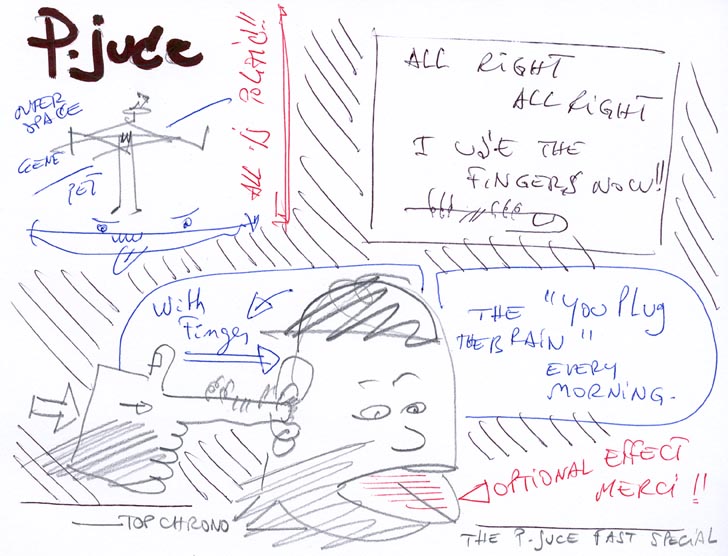 P.juce
OUTER
SPACE
GENE
PET
ALL is POLAID!!
ALL RIGHT
ALL RIGHT
I USE THE
FINGERS NOW!!
With
Finger
THE "YOU PLUG
THE BRAIN"
EVERY
MORNING.
OPTIONAL EFFECT
MERCI !!
TOP CHRONO
THE P-JUCE FAST SPECIAL